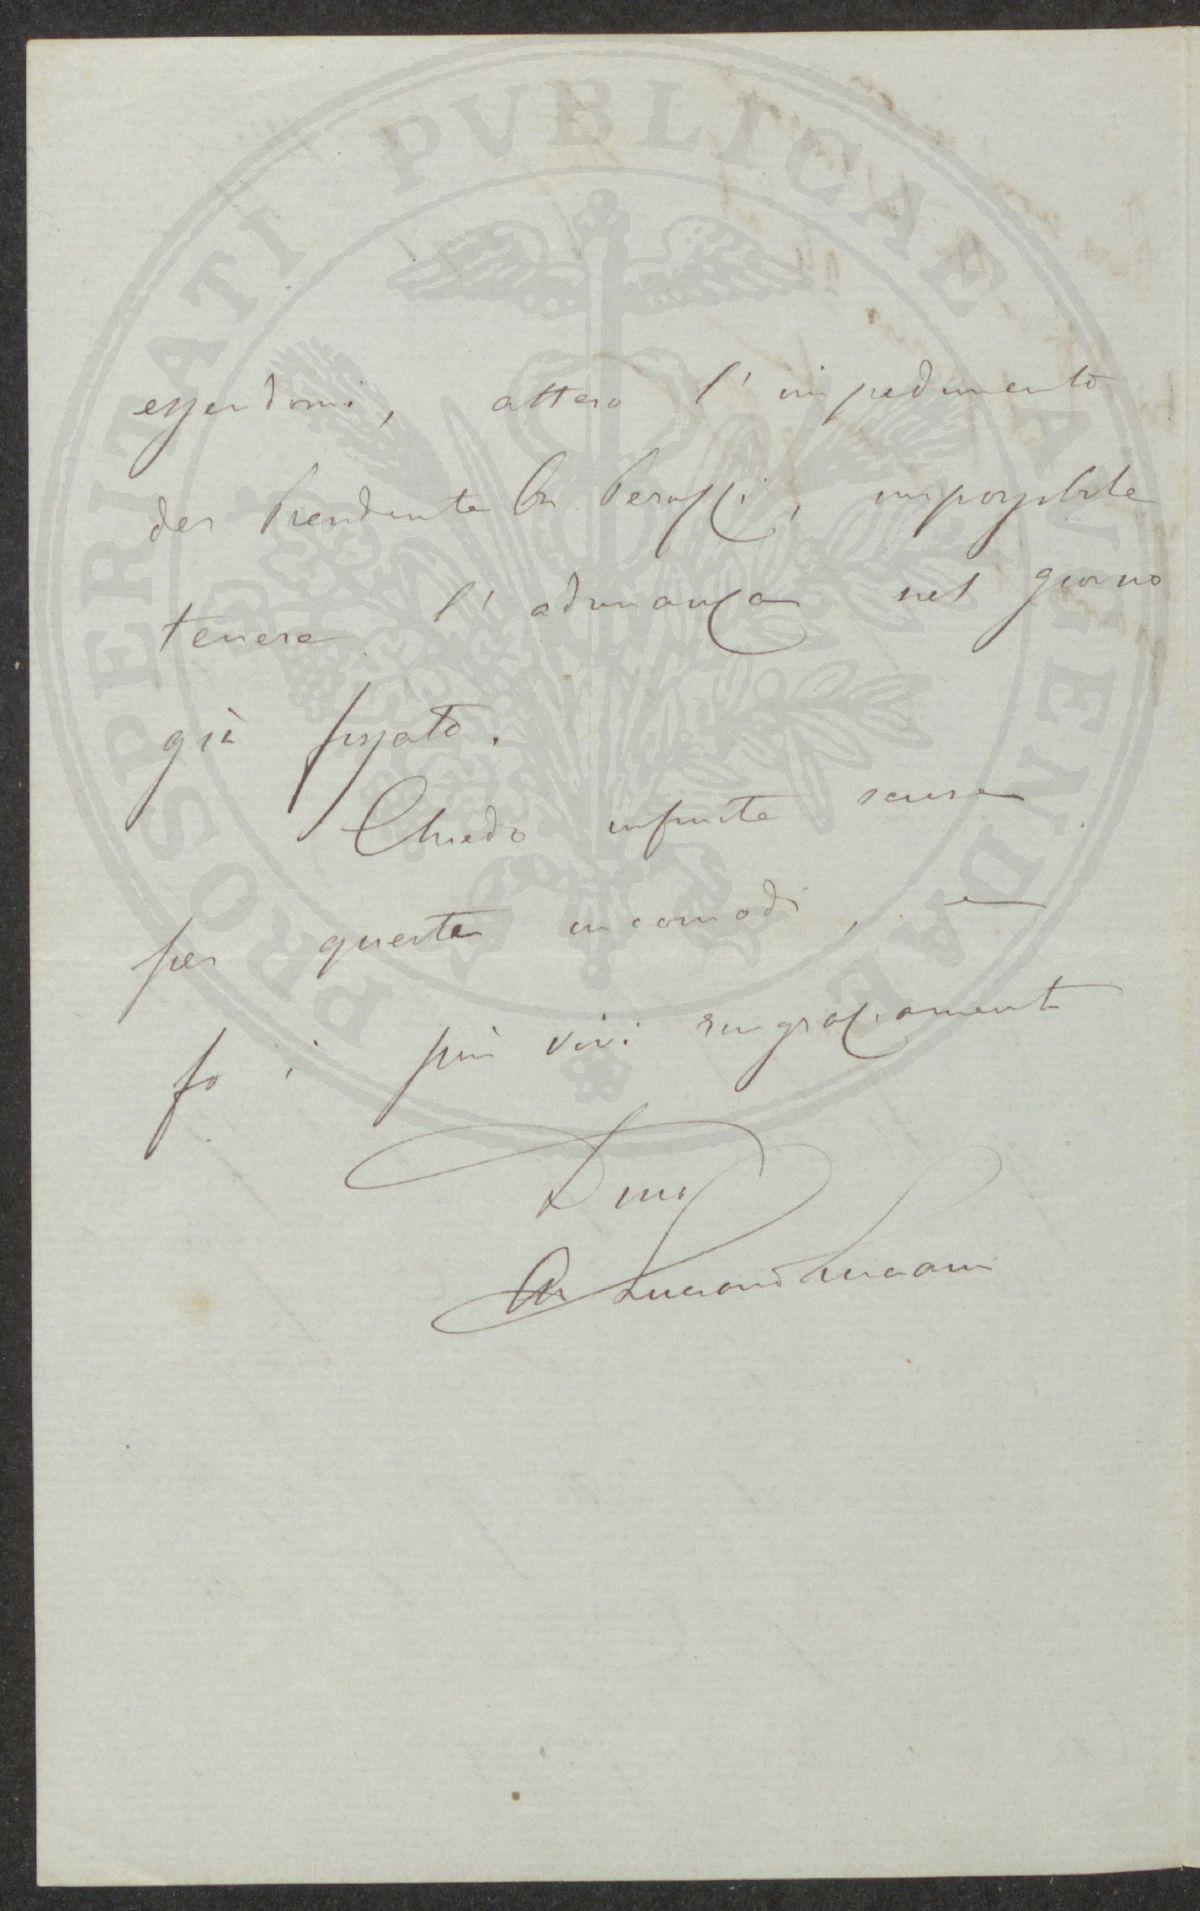 PROSPERITATI PVBLICAE AVGENDAE
essendomi, atteso l'impedimento
del Presidente Peruzzi, impossibile
tenere l'adunanza nel giorno
già fissato.
Chiedo infinite scuse
per questi incomodi, e
fo i più vivi ringraziamenti
Luciano Luciani